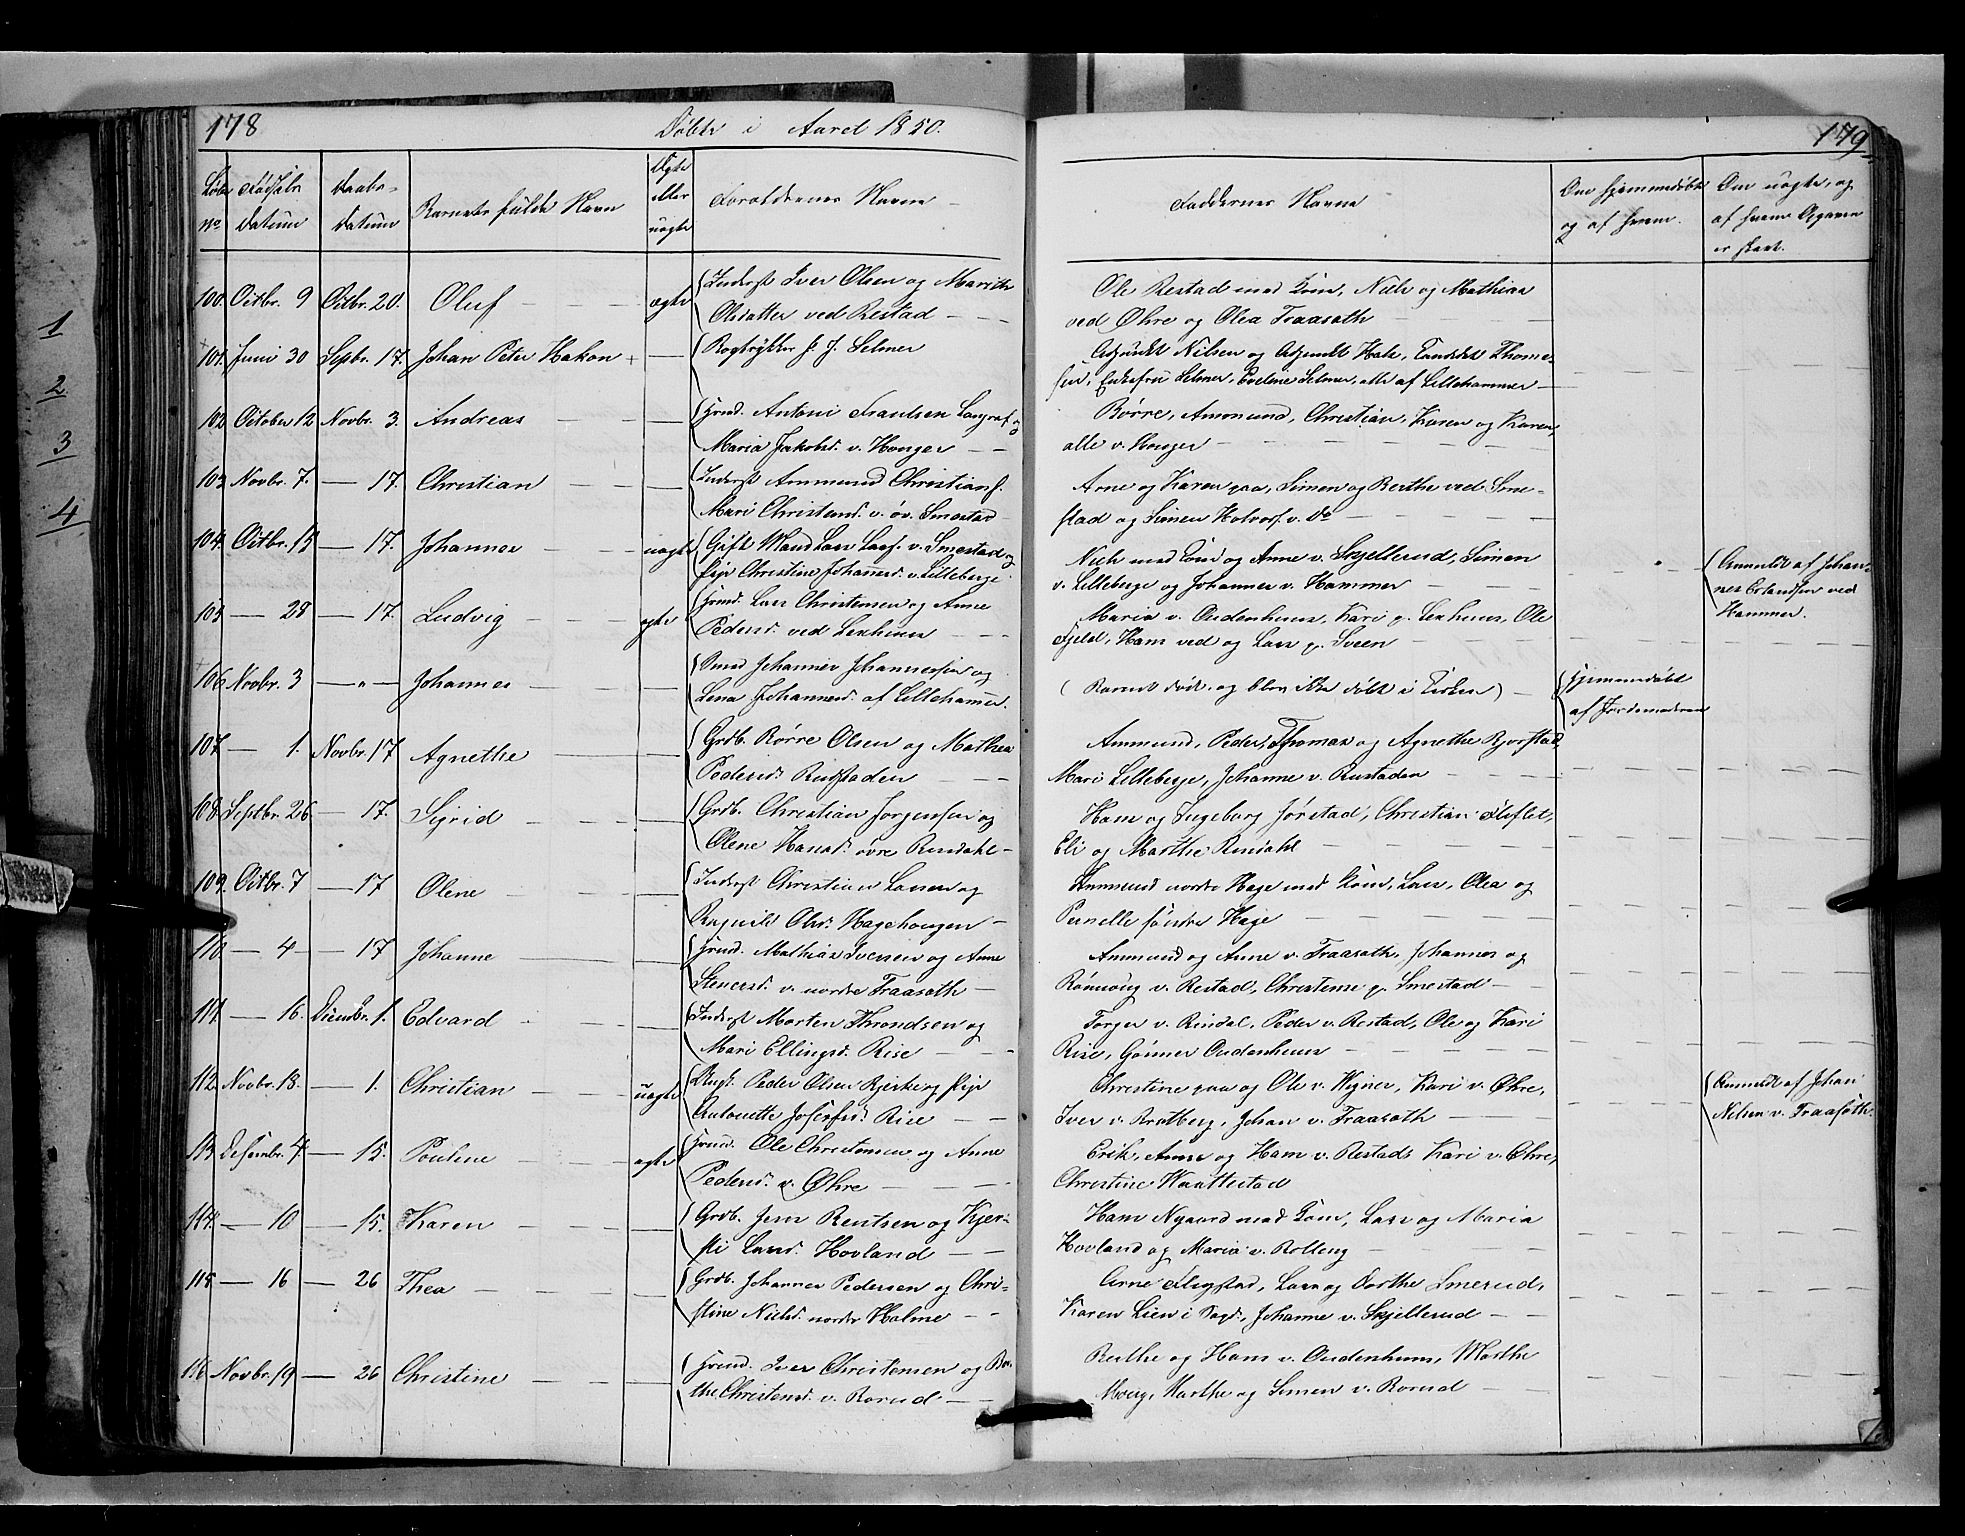 178
Døbte i Aaret 1850.
179
Løbe no.
Fødsels Datum
Daabs-Datum
Barnets fulde Navn
Ægte eller uægte
Forældrenes Navne
Faddernes Navne
Om hjemmedøbt og af hvem.
Om uægte, og af hvem Opgaven er skeet.
100. Octbr. 9 Octbr. 20. Oluf ægte Inderst Iver Olsen og Marithe
Olsdatter ved Restad
Ole Restad med Kone, Niels og Mathias
ved Øhre og Olea Traaseth
101. Juni 30 Septbr. 17. Johan Peter Hakon + Bogtrykker F. J. Selmer
Adjunkt Nilsen og Adjunkt Hals, Candidat Thome-
sen, Enkefru Selmer, Eveline Selmer, alle af Lillehammer
102 October 12 Novbr. 3. Andreas Huusd. Antoni Frantsen Langraf og
Maria Jakobsd. v. Houger
Børre, Ammund, Christian, Karen og Karen,
alle v. Houger
103 Novbr. 7. — 17. Christian Inderst Ammund Christians.
Mari Christensd. v. øv. Smestad
Arne og Karen paa, Simen og Berthe ved Sme-
stad og Simen Halvors. v. Do
104. Octbr. 15 — 17. Johannes uægte Gift Mand Lars Lars. v. Smestad og
Pige Christine Johannesd. v. Lilleberge.
Niels med Kone og Anne v. Skjellerud, Simen
v. Lilleberge og Johannes v. Hammer
Anmeldt af Johan-
nes Erlandsen ved
Hammer.
105 — 28 — 17. Ludvig ægte Huusd. Lars Christensen og Anne
Pedersd. ved Lexhuus
Maria v. Oudenhuus, Kari p. Lexhuus, Ole
Fjeld, Hans ved og Lars p. Sveen
106 Novbr. 3 — " — Johannes Smed Johannes Johannessen og
Lena Johannesd. af Lillehammer.
(Barnet døde, og blev ikke døbt i Kirken)
hjemmedøbt
af Jordemoderen
107. — 1. Novbr. 17 Agnethe Grdb. Børre Olsen og Mathea
Pedersd. Rustaden
Ammund, Peder, Thomas og Agnethe Bjørstad,
Mari Lilleberge, Johanne v. Rustaden
108. Septbr. 26 — 17. Sigrid Grdb. Christian Jørgensen og
Olene Hansd. øvre Rindahl
Hans og Ingeborg Jørstad, Christian Fliflet,
Eli og Marthe Rindahl
109. Octbr. 7 — 17 Olene Inderst Christian Larsen og
Ragnild Olsd. Hagehougen
Ammund nordre Hage med Kone, Lars, Olea og
Pernelle søndre Hage
110. — 4 — 17 Johanne Huusd. Mathias Iversen og Anne
Stenersd. v. nordre Traaseth
Ammund og Anne v. Traaseth, Johannes og
Rønnoug v. Restad, Christense p. Smestad
111. — 16. Decembr. 1. Edvard Inderst Morten Throndsen og
Mari Ellingsd. Rise
Torger v. Rindal, Peder v. Restad, Ole og Kari
Rise, Gunner Oudenhuus
112 Novbr. 18. — 1. Christian uægte Ungk. Peder Olsen Bjerke og Pige
Antonette Josefsd. Rise
Christine paa og Ole v. Vigner, Kari v. Øhre,
Iver v. Bratberg, Johan v. Traaseth
Anmeldt af Johan
Nilsen v. Traaseth.
113 Desembr. 4 — 15. Pouline ægte Huusd. Ole Christensen og Anne
Pedersd. v. Øhre
Erik, Anne og Hans v. Restad, Kari v. Øhre,
Christine Haattestad
114. — 10 — 15. Karen Grdb. Jens Bentsen og Kjer-
sti Larsd. Hovland
Hans Nygaard med Kone, Lars og Maria
Hovland og Maria v. Rolleng
115 — 16 — 26 Thea Grdb. Johannes Pedersen og Chri-
stine Nielsd. nordre Holme
Arne Flugstad, Lars og Dorthe Smerud,
Karen Lien i Sagd., Johanne v. Skjellerud
116 Novbr. 19 — 26 Christine Huusd. Iver Christensen og Ber-
the Christensd. v. Rorud
Berthe og Hans v. Oudenhuus, Marthe
Moerg, Marthe og Simen v. Rorud
1
2
3
4